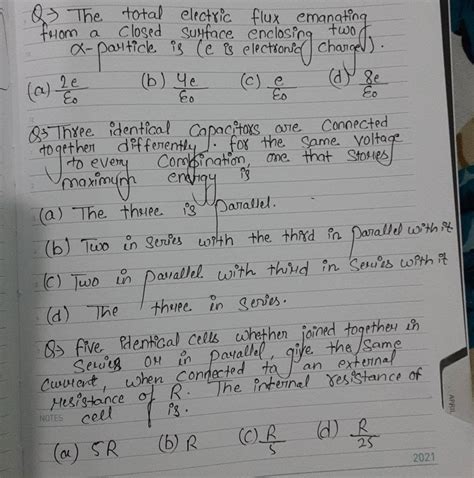 Q→ The total electric flux emanating
from a closed surface enclosing two
α-particle is (e is electronic charge).
(a) 2e/ε0 (b) 4e/ε0 (c) e/ε0 (d) 8e/ε0
Q→ Three identical capacitors are connected
together differently. for the same voltage
to every combination, one that stores
maximum energy is
(a) The three is parallel.
(b) Two in series with the third in parallel with it
(c) Two in parallel with third in series with it
(d) The three in series.
Q→ five identical cells whether joined together in
series or in parallel, give the same
current, when connected to an external
resistance of R. The internal resistance of
cell is.
(a) 5R (b) R (c) R/5 (d) R/25
NOTES
APRIL
2021